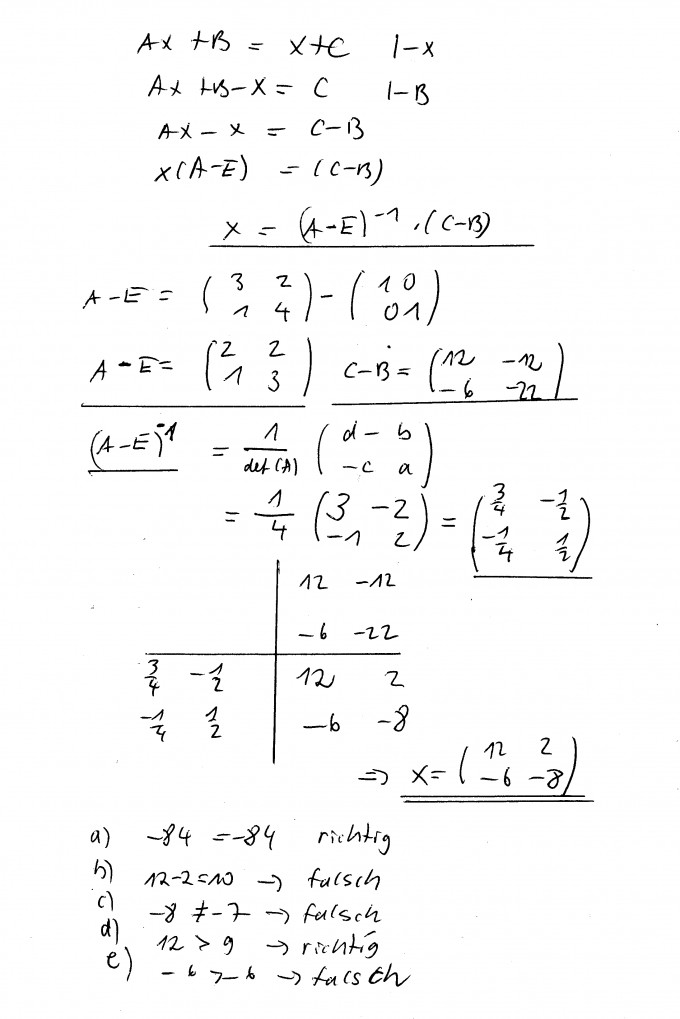 Ax +B = x+C |-x
Ax +B-x = C |-B
Ax - x = C-B
x(A-E) = (C-B)
x = (A-E)^-1 · (C-B)
A-E = (3 2 / 1 4) - (1 0 / 0 1)
A-E = (2 2 / 1 3) C-B = (12 -12 / -6 -22)
(A-E)^-1 = 1/det(A) (d -b / -c a)
= 1/4 (3 -2 / -1 2) = (3/4 -1/2 / -1/4 1/2)
12 -12
-6 -22
3/4 -1/2 12 2
-1/4 1/2 -6 -8
=> x = (12 2 / -6 -8)
a) -84 = -84 richtig
b) 12-2=10 -> falsch
c) -8 ≠ -7 -> falsch
d) 12 > 9 -> richtig
e) -6 > -6 -> falsch